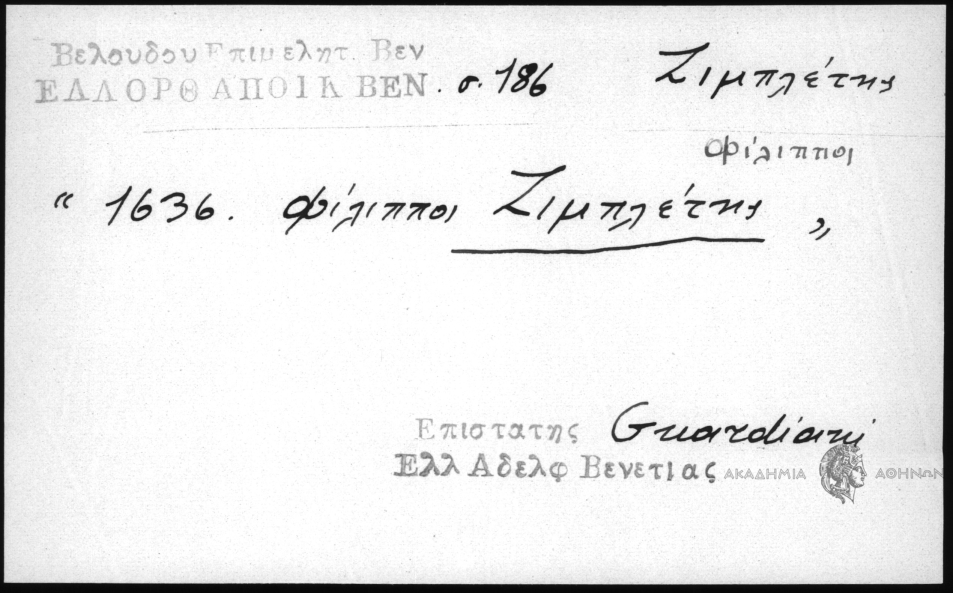 Βελουδου Επιμελητ. Βεν
ΕΛΛΟΡΘ ΑΠΟΙΚ ΒΕΝ. σ. 186 Ζιμπλέτης
Φίλιππος
“ 1636. Φίλιππος Ζιμπλέτης „
Επιστατης Guardiani
Ελλ Αδελφ Βενετιας
ΑΚΑΔΗΜΙΑ ΑΘΗΝΩΝ